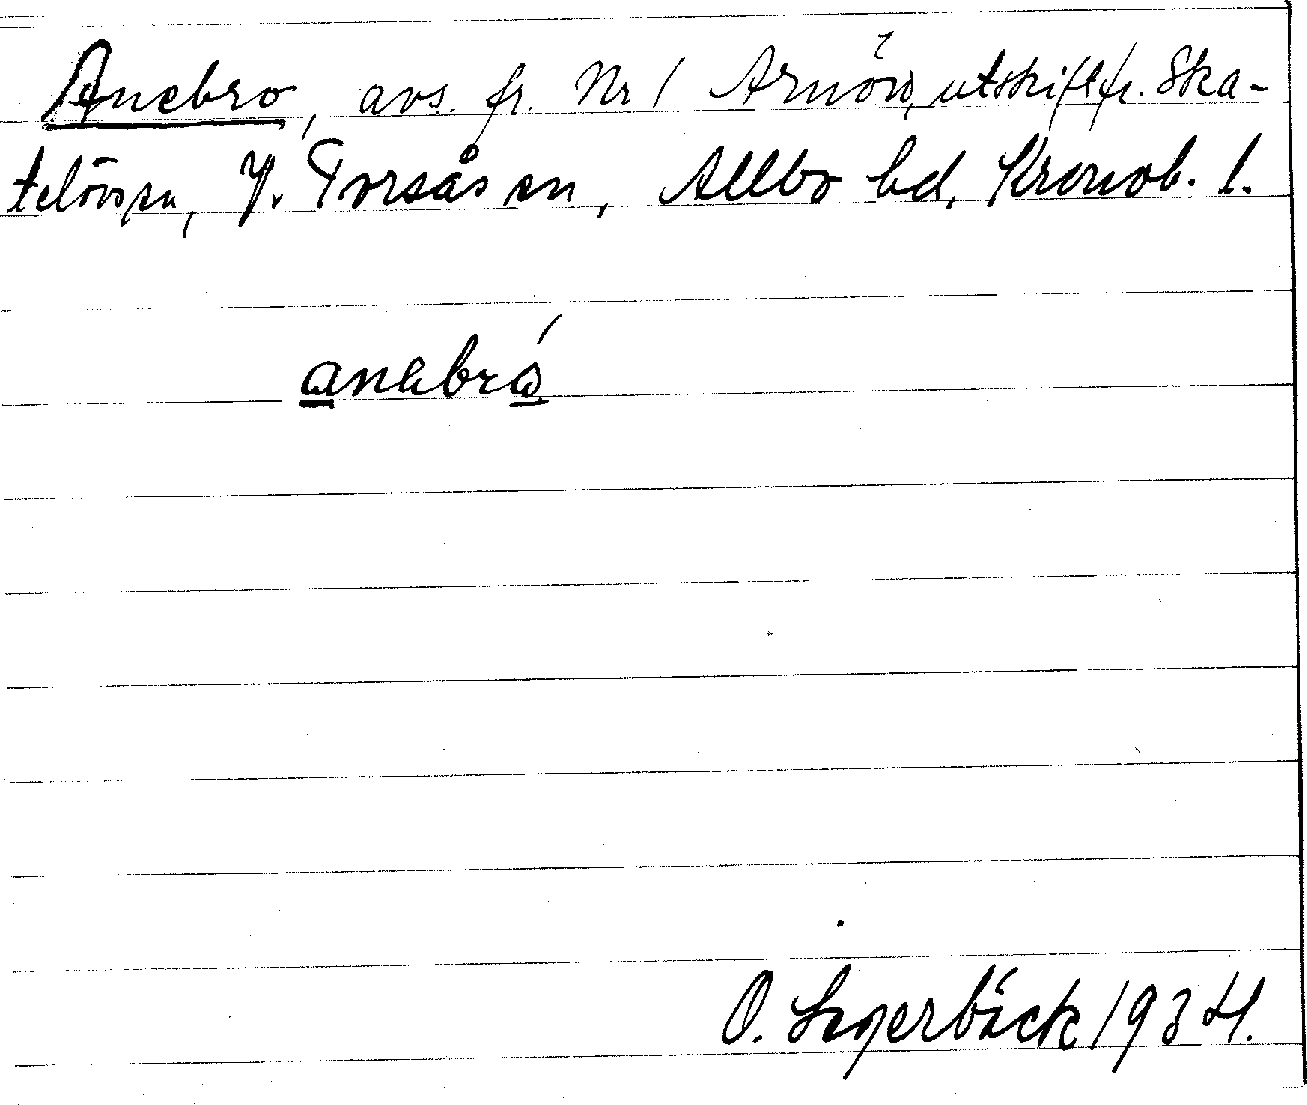 Anebro, avs. fr. Nr 1 Arnön, utskift fr. Ska-
telövs sn, V. Torsås sn, Allbo hd, Kronob. l.
anabró
O. Lagerbäck 1934.